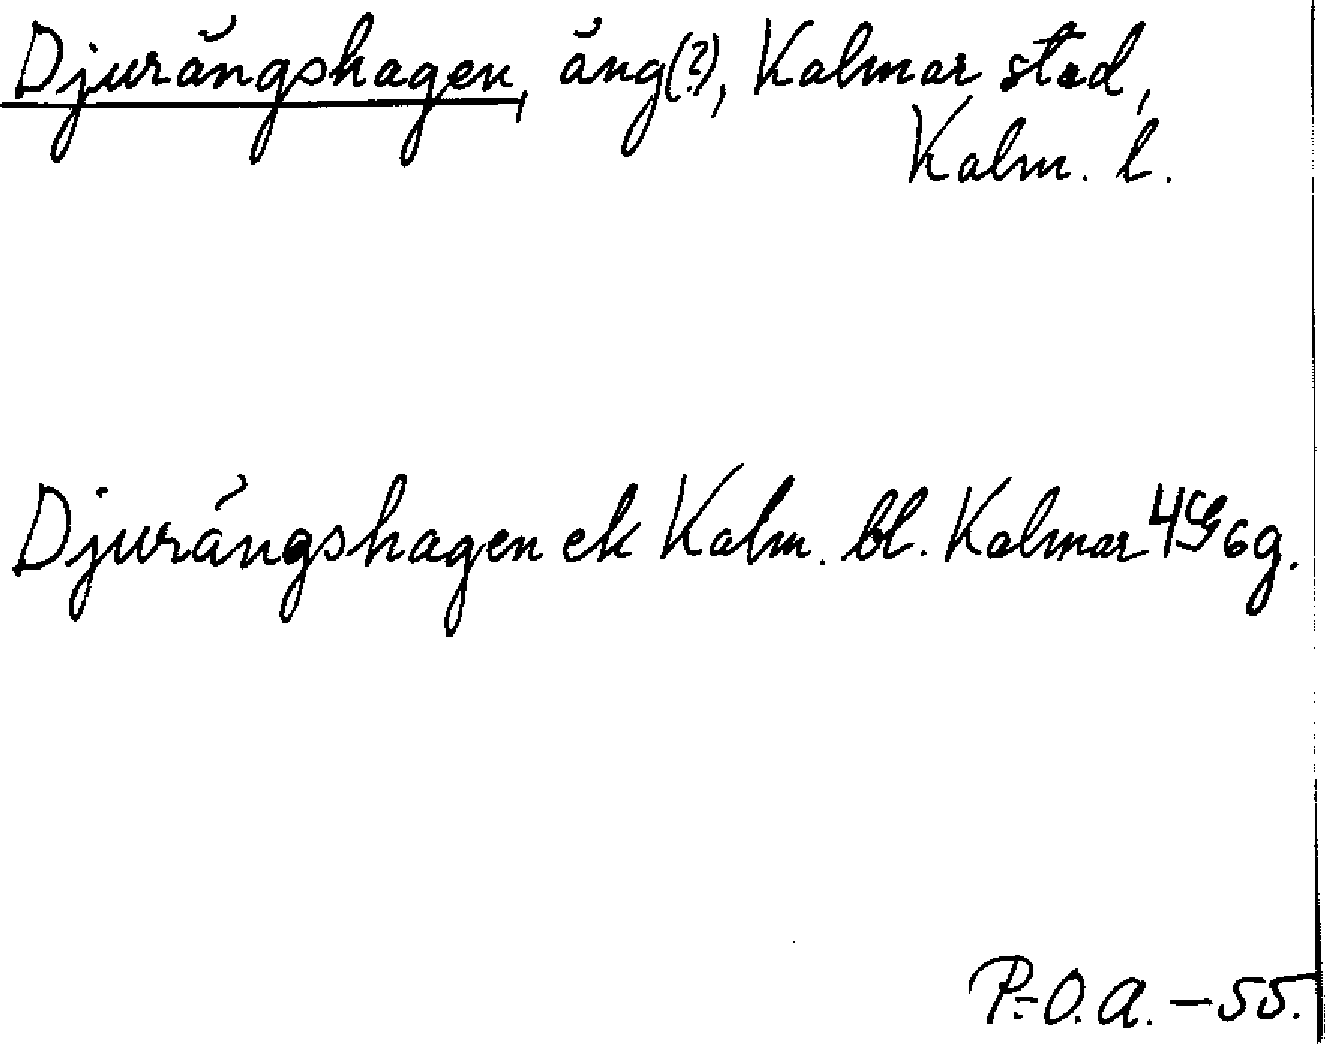 Djurängshagen, äng(?), Kalmar stad,
Kalm. l.
Djurängshagen ek Kalm. bl. Kalmar 4G6g.
P.-O. A. – 55.